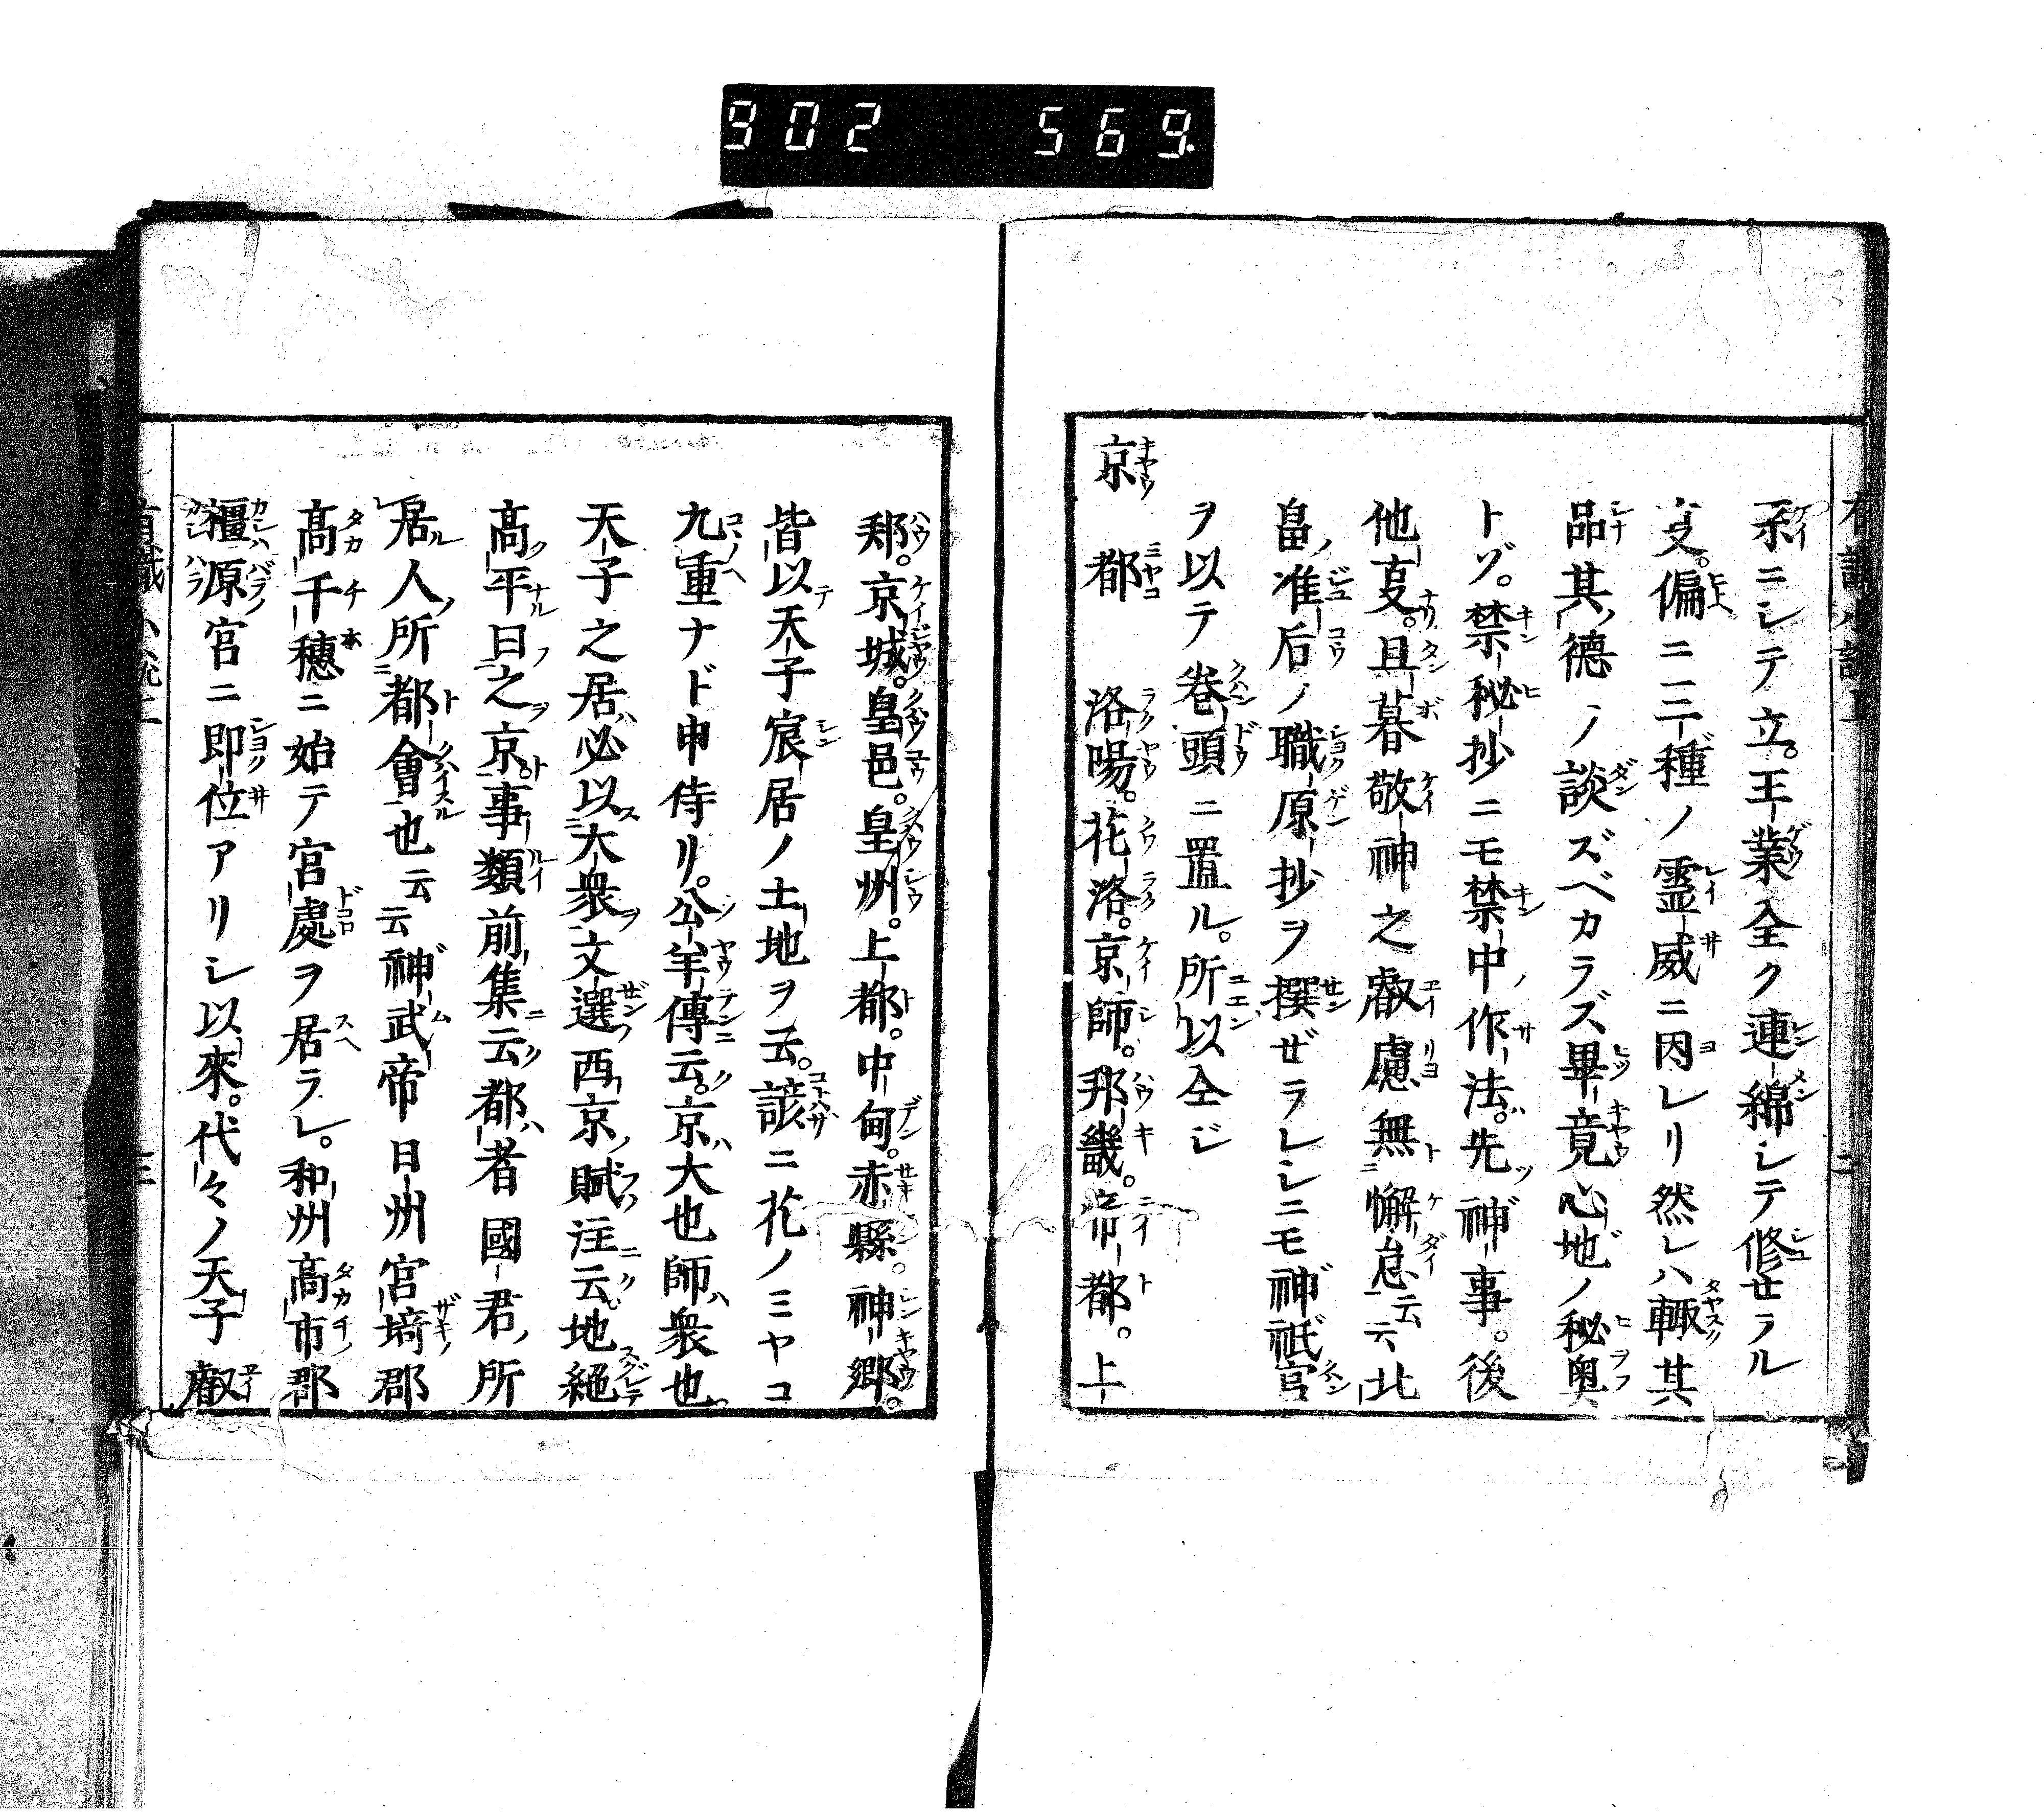 902 569.
系ニシテ立。王業全ク連綿シテ修セラル
叓。偏ニ三種ノ霊威ニ因レリ然レハ輙其
品其德ノ談ズベカラズ畢竟心地ノ秘奥
トゾ。禁秘抄ニモ禁中作法。先神事。後
他叓。且暮敬神之叡慮無懈怠云云北
畠准后ノ職原抄ヲ撰ゼラレシニモ神祇官
ヲ以テ巻頭ニ置ル。所以仝ジ
京 都 洛陽。花洛。京師。邦畿。帝都。上
邦。京城。皇邑。皇州。上都。中甸。赤縣。神郷。
皆以天子宸居ノ土地ヲ云。諺ニ花ノミヤコ
九重ナド申侍リ。公羊傳云。京大也師衆也。
天子之居必以大衆文選西京賦注云地絶
髙平曰之京。事類前集云都者國君所
居人所都會也云云神武帝日州宮埼郡
髙千穗ニ始テ宮處ヲ居ラレ。和州髙市郡
橿原宮ニ即位アリシ以來。代々ノ天子叡